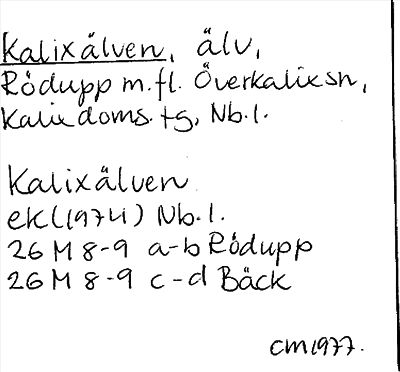 Kalixälven, älv,
Rödupp m.fl. Överkalix sn,
Kalix doms. tg, Nb.l.
Kalixälven
ek (1974) Nb.l.
26 M 8-9 a-b Rödupp
26 M 8-9 c-d Bäck
CM 1977.